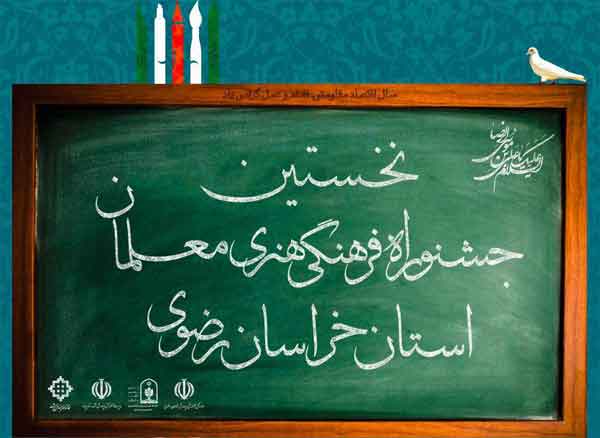 سال اقتصاد مقاومتی، اقدام و عمل گرامی باد
السلام علیک یا علی بن موسی الرضا
نخستین
جشنواره فرهنگی هنری معلمان
استان خراسان رضوی